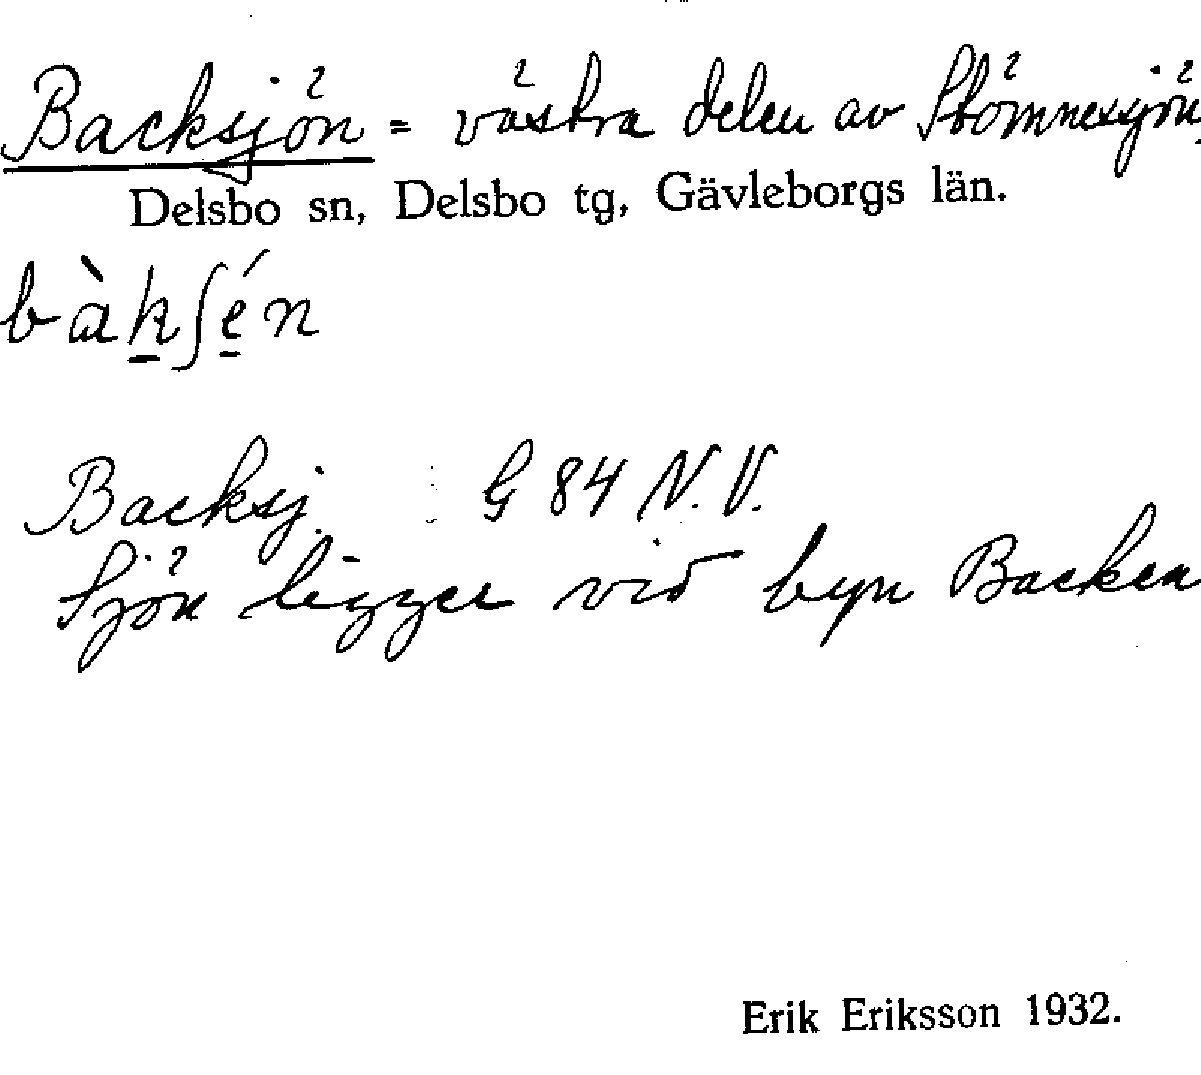 Backsjön = västra delen av Stömnesjön.
Delsbo sn, Delsbo tg, Gävleborgs län.
bàkʃén
Backsj. : G 84 N.V.
Sjön ligger vid byn Backen
Erik Eriksson 1932.